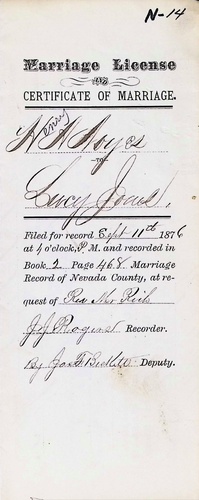 N-14
Marriage License
AND
CERTIFICATE OF MARRIAGE.
Henry
H. A. Noyes
TO
Lucy Jones.
Filed for record Sept 11th 1876
at 4 o'clock, P. M. and recorded in
Book 2 Page 468 Marriage
Record of Nevada County, at re-
quest of Rev Mr
J J Rogers Recorder.
By Jas Deputy.